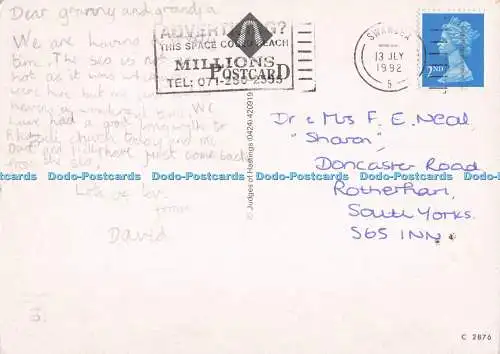 Dear granny and grandja
We are having
time. The sea is not
hot as it was when
were here but we are
having a wonderful time. We
have had a good long walk to
Rhossili church today and me
Dad and just come back
from the sea.
Lots of love
from
David
ADVERTISING?
THIS SPACE COULD REACH
MILLIONS
POSTCARD
TEL: 071-250-2335
SWANSEA
13 JLY
1992
S
2ND
© Judges of Hastings (0424) 420919
Dr & Mrs F. E. Neal
"Sharon"
Doncaster Road
Rotherham,
South Yorks.
S65 1NN.
Dodo-Postcards Dodo-Postcards Dodo-Postcards Dodo-Postcards Dodo-Postcards Dodo-Postcards
C 2876